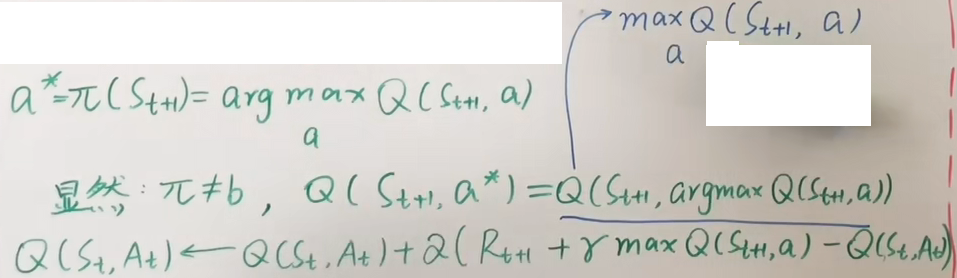 max Q(S_{t+1}, a)
a
a*=π(S_{t+1})= arg max Q(S_{t+1}, a)
a
显然: π≠b, Q(S_{t+1}, a*)=Q(S_{t+1}, argmax Q(S_{t+1}, a))
Q(S_t, A_t)←Q(S_t, A_t)+α(R_{t+1}+γ max Q(S_{t+1}, a)-Q(S_t, A_t)